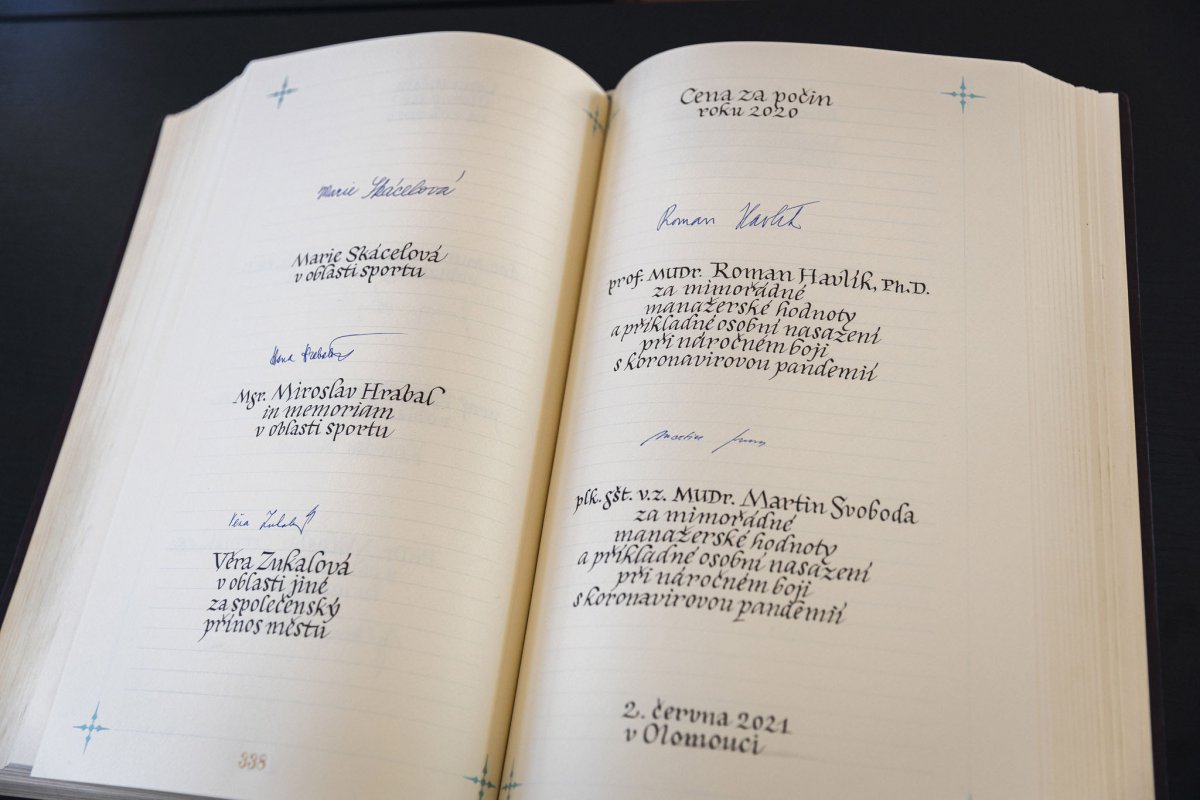 Marie Skácelová
Marie Skácelová
v oblasti sportu
Hana
Mgr. Miroslav Hrabal
in memoriam
v oblasti sportu
Věra
Věra Zukalová
v oblasti jiné
za společenský
přínos městu
338
Cena za počin
roku 2020
Roman Havlík
prof. MUDr. Roman Havlík, Ph.D.
za mimořádné
manažerské hodnoty
a příkladné osobní nasazení
při náročném boji
s koronavirovou pandemií
Martin
plk. gšt. v.z. MUDr. Martin Svoboda
za mimořádné
manažerské hodnoty
a příkladné osobní nasazení
při náročném boji
s koronavirovou pandemií
2. června 2021
v Olomouci